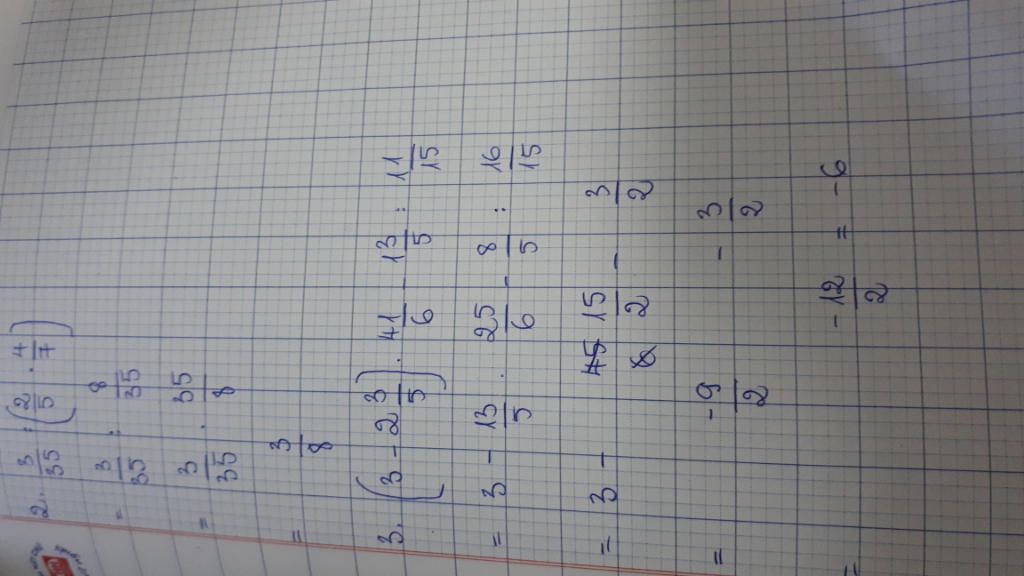 2. 3/35 : (2/5 . 4/7)
= 3/35 : 8/35
= 3/35 . 35/8
= 3/8
3. (3 - 2 3/5) . 41/6 - 13/5 : 11/15
= 3 - 13/5 . 25/6 - 8/5 : 16/15
= 3 - 15/2 - 3/2
= -9/2 - 3/2
= -12/2 = -6